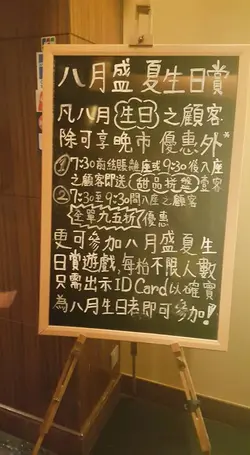 八月盛夏生日賞
凡八月生日之顧客
除可享晚市優惠外*
① 7:30前結賬離座或9:30後入座
之顧客即送甜品拼盤壹客
② 7:30至9:30間入座之顧客
全單九五折優惠
更可參加八月盛夏生
日賞遊戲,每枱不限人數
只需出示ID Card以確實
為八月生日者即可參加!